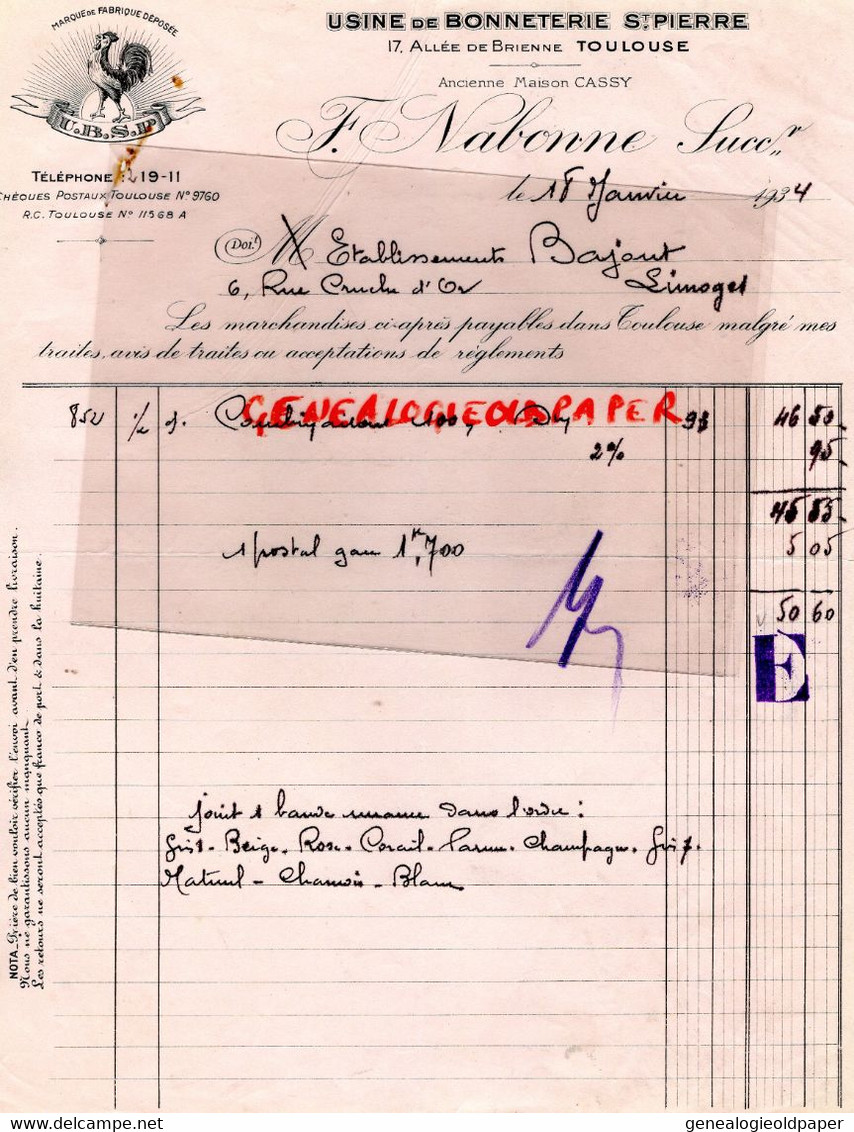 MARQUE DE FABRIQUE DÉPOSÉE
U.B.S.P.
USINE DE BONNETERIE ST. PIERRE
17, ALLÉE DE BRIENNE TOULOUSE
Ancienne Maison CASSY
F. Nabonne Succr
TÉLÉPHONE: 219-11
CHÈQUES POSTAUX TOULOUSE N° 9760
R.C. TOULOUSE N° 11568 A
le 18 Janvier 1934
Doit M Etablissements Bajout
6, Rue Cruche d'Or Limoges
Les marchandises ci-après payables dans Toulouse malgré mes
traites, avis de traites ou acceptations de réglements
GENEALOGIEOLDPAPER
852 1/2 d. 93 46 50
2% 95
45 55
1 postal gare 1K,700 5 05
50 60
E
joint 1 bande dans l'ordre:
Gris 1 - Beige - Rose - Corail - Parme - Champagne - Gris 7.
Chamois - Blanc
NOTA _ Prière de bien vouloir vérifier l'envoi avant d'en prendre livraison.
Nous ne garantissons aucun manquant.
Les retours ne seront acceptés que franco de port & dans la huitaine.
delcampe.net
genealogieoldpaper